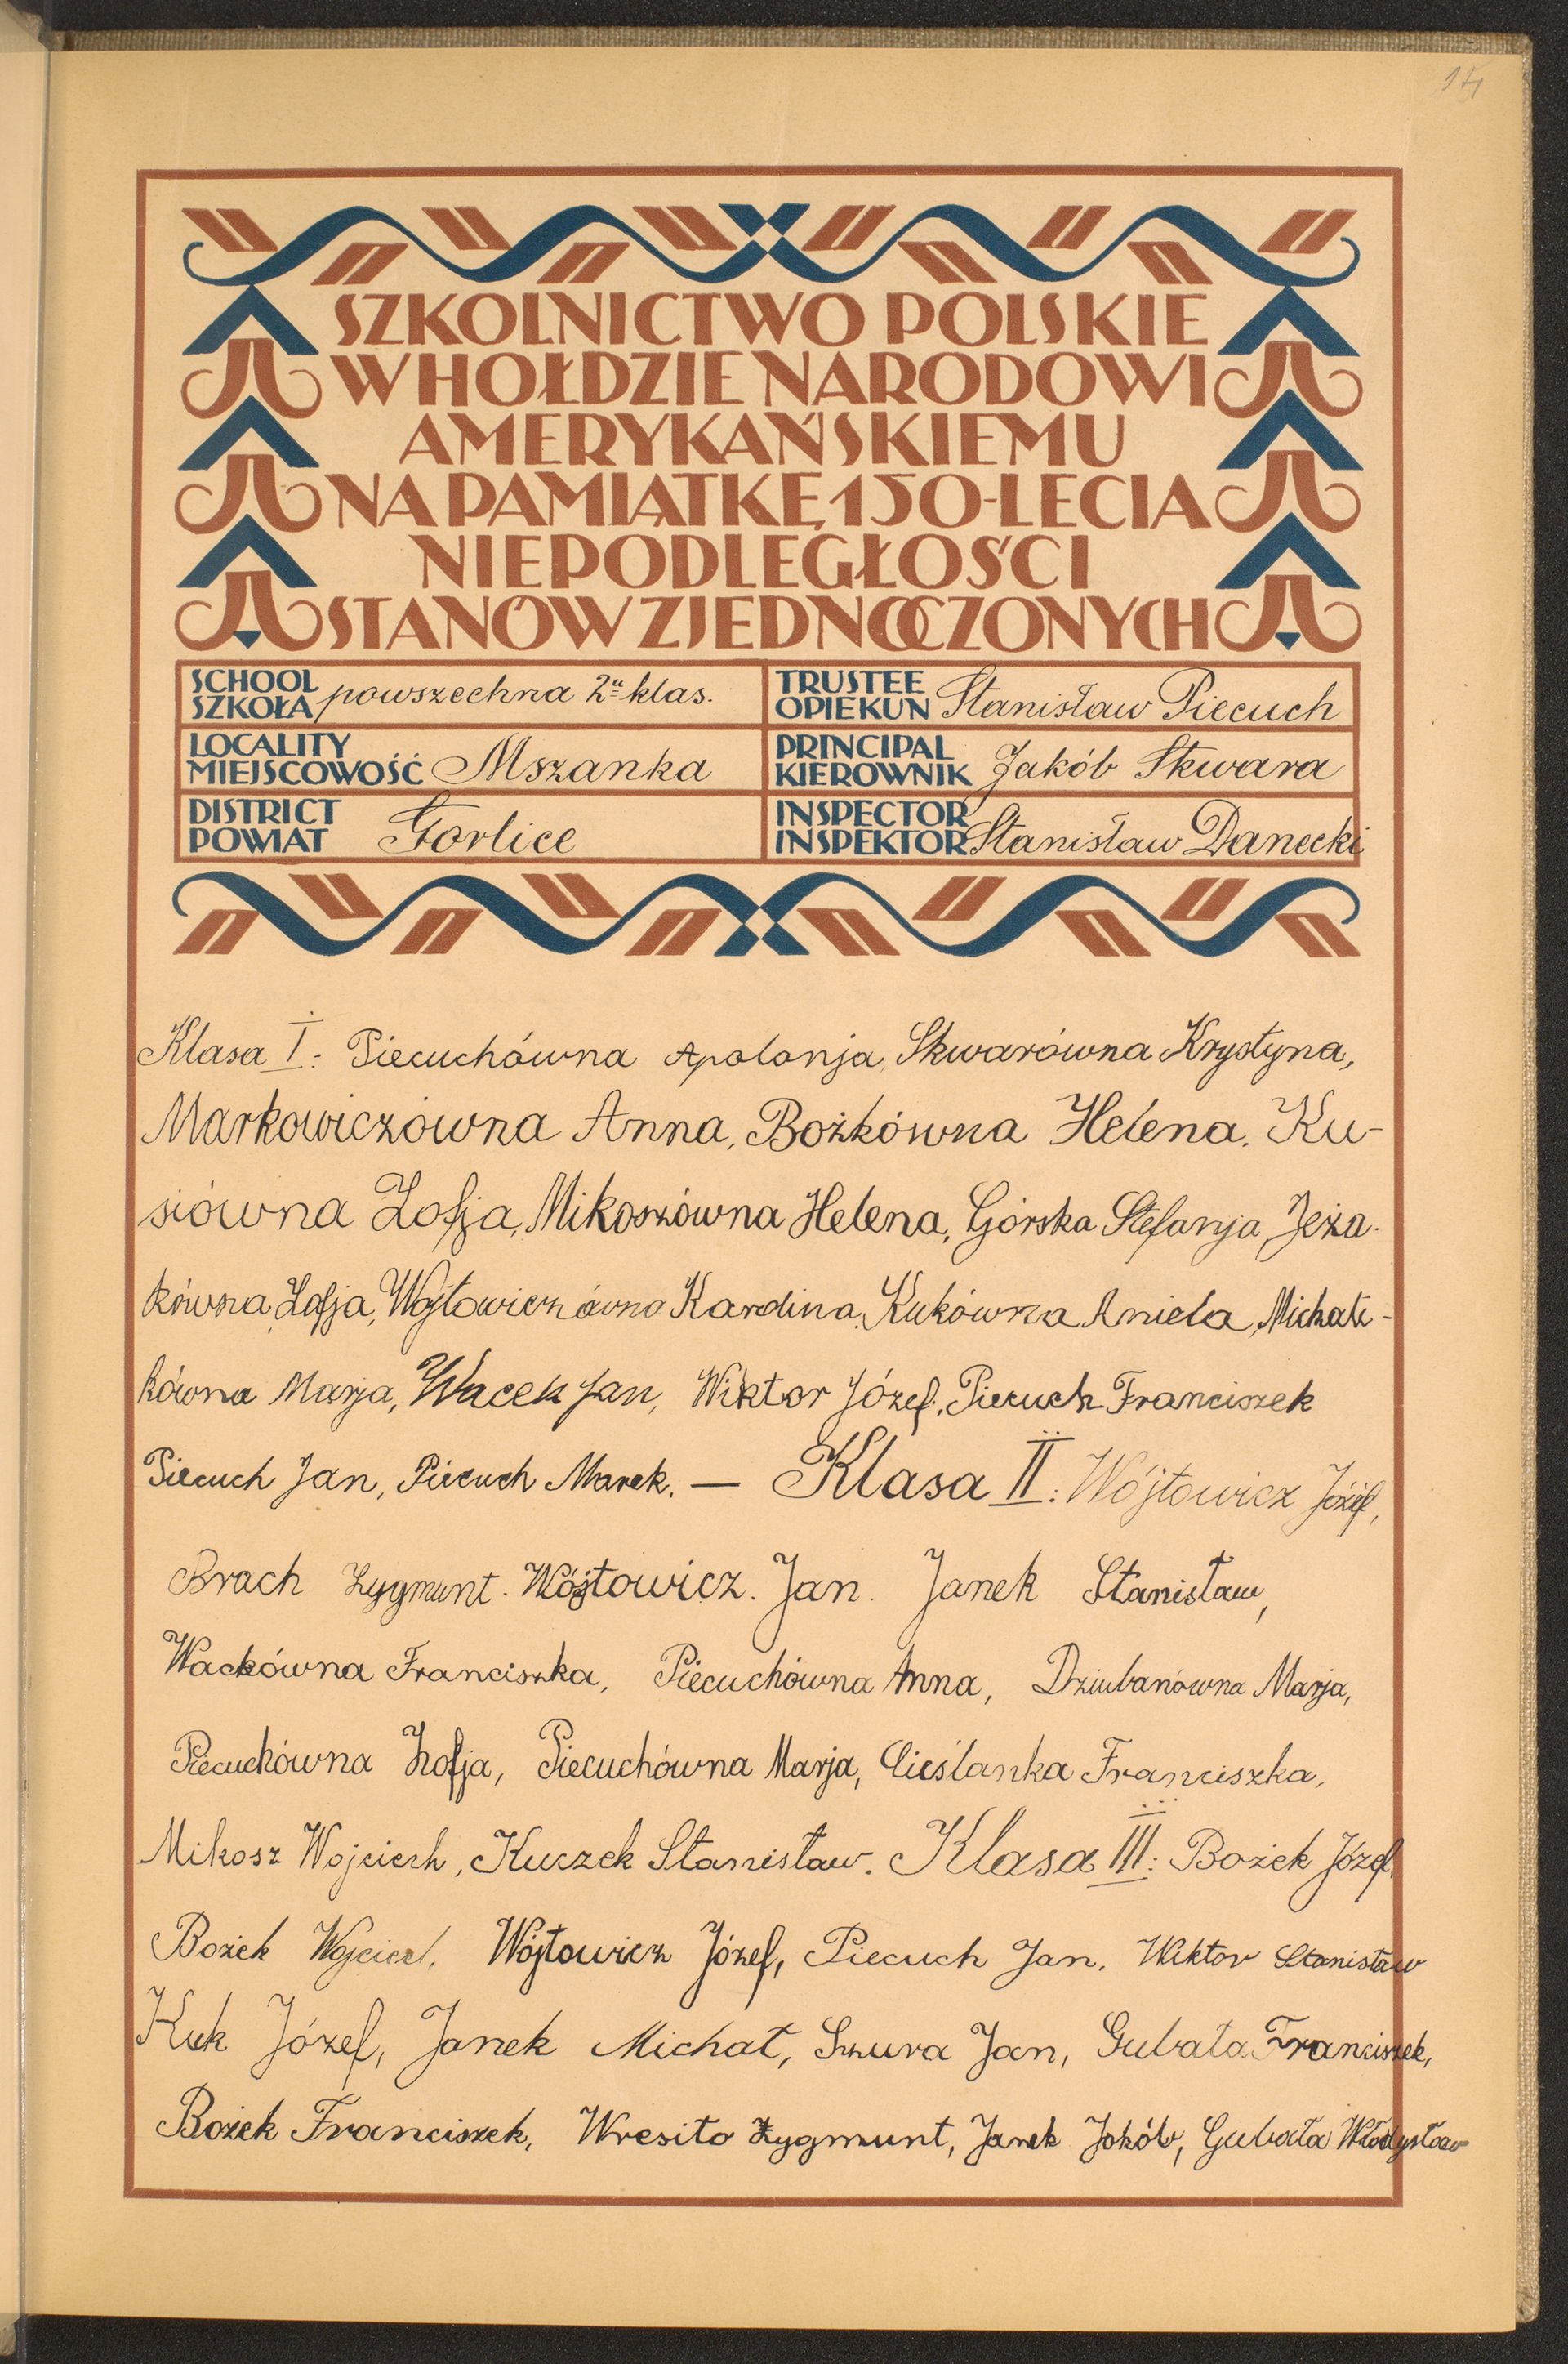 14
SZKOLNICTWO POLSKIE
W HOŁDZIE NARODOWI
AMERYKAŃSKIEMU
NA PAMIĄTKĘ 150-LECIA
NIEPODLEGŁOŚCI
STANÓW ZJEDNOCZONYCH
SCHOOL
SZKOŁA powszechna 2u klas.
TRUSTEE
OPIEKUN Stanisław Piecuch
LOCALITY
MIEJSCOWOŚĆ Mszanka
PRINCIPAL
KIEROWNIK Jakób Skwara
DISTRICT
POWIAT Gorlice
INSPECTOR
INSPEKTOR Stanisław Danecki
Klasa I: Piecuchówna Apolonja, Skwarówna Krystyna,
Markowiczówna Anna, Bożkówna Helena. Ku-
siówna Zofja, Mikoszówna Helena, Górska Stefanja, Jeża-
kówna Zofja, Wojtowiczówna Karolina, Kukówna Aniela, Michali-
kówna Marja, Wacek Jan, Wiktor Józef, Piecuch Franciszek
Piecuch Jan, Piecuch Marek. — Klasa II: Wójtowicz Józef,
Brach Zygmunt. Wójtowicz. Jan. Janek Stanisław,
Wackówna Franciszka, Piecuchówna Anna, Dziubanówna Marja,
Piecuchówna Zofja, Piecuchówna Marja, Cieślanka Franciszka,
Mikosz Wojciech, Kuczek Stanisław. Klasa III: Bożek Józef,
Bożek Wojciech, Wójtowicz Józef, Piecuch Jan, Wiktor Stanisław
Kuk Józef, Janek Michał, Szura Jan, Gubała Franciszek,
Bożek Franciszek, Wresiło Zygmunt, Janek Jakób, Gubała Władysław